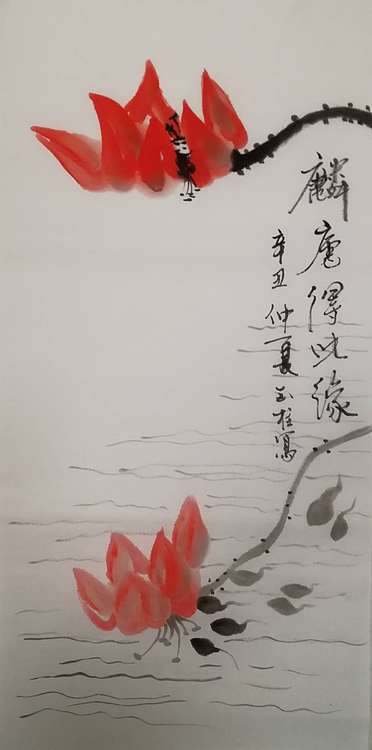 麟得此缘
辛丑仲夏玉柱写